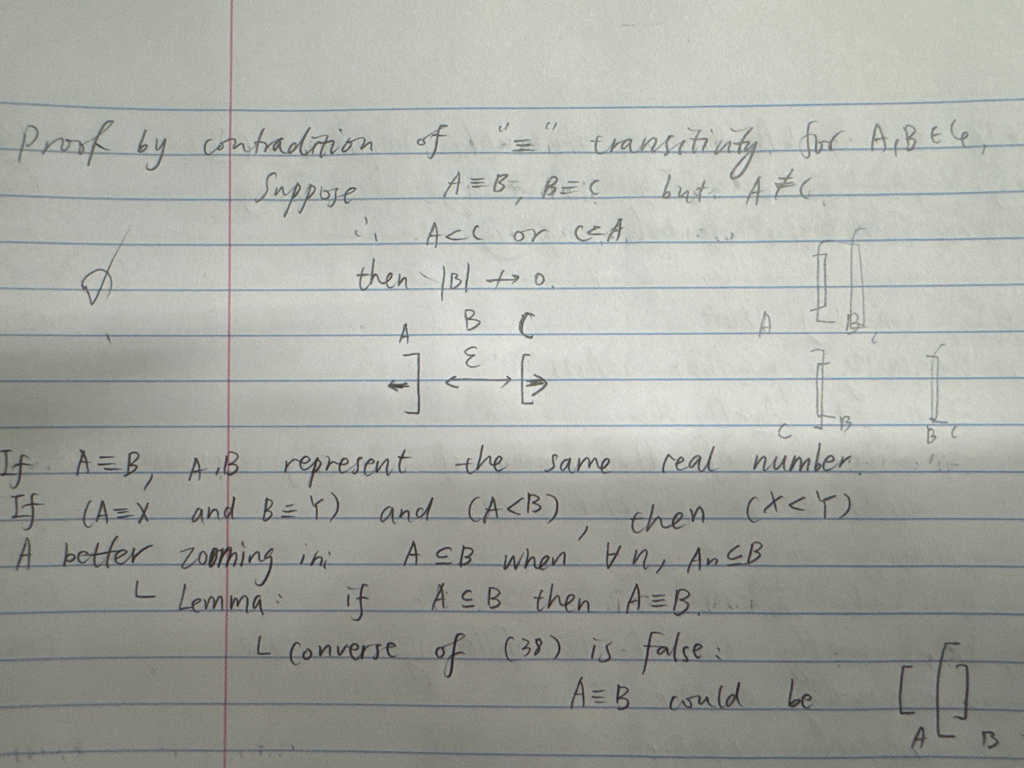 Proof by contradition of "≡" transitivity for A,B ∈ φ,
Suppose A≡B, B≡C but A≢C.
∴ A<C or C<A
then |B| ↛ 0.
A B C
ε
A B C
C B B C
If A≡B, A,B represent the same real number.
If (A≡X and B≡Y) and (A<B), then (X<Y)
A better zooming in: A⊆B when ∀n, An⊆B
Lemma: if A⊆B then A≡B.
Converse of (38) is false:
A≡B could be
A B